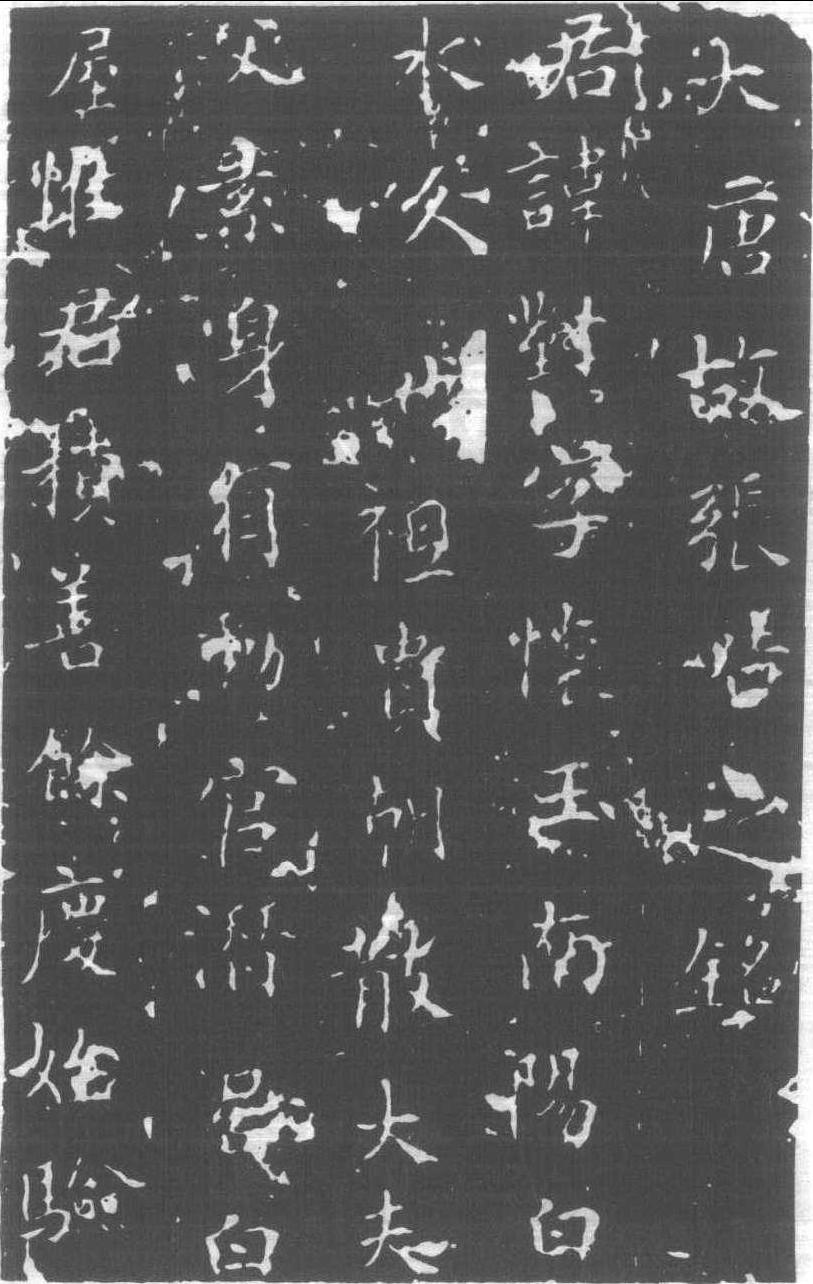 大唐故張惜之銘
君諱對字懷玉南陽白
水人也祖朝散大夫
父素身有勳官潛白
屋雖君積善餘慶始驗